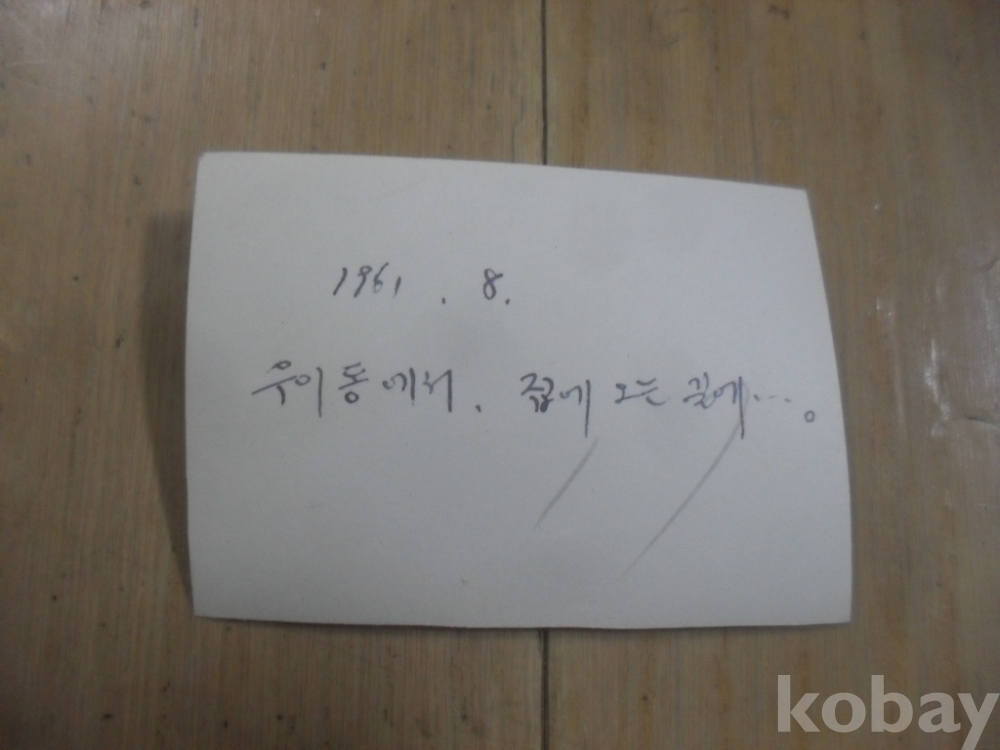 1961. 8.
우이동에서. 집에 오는 길에….
kobay